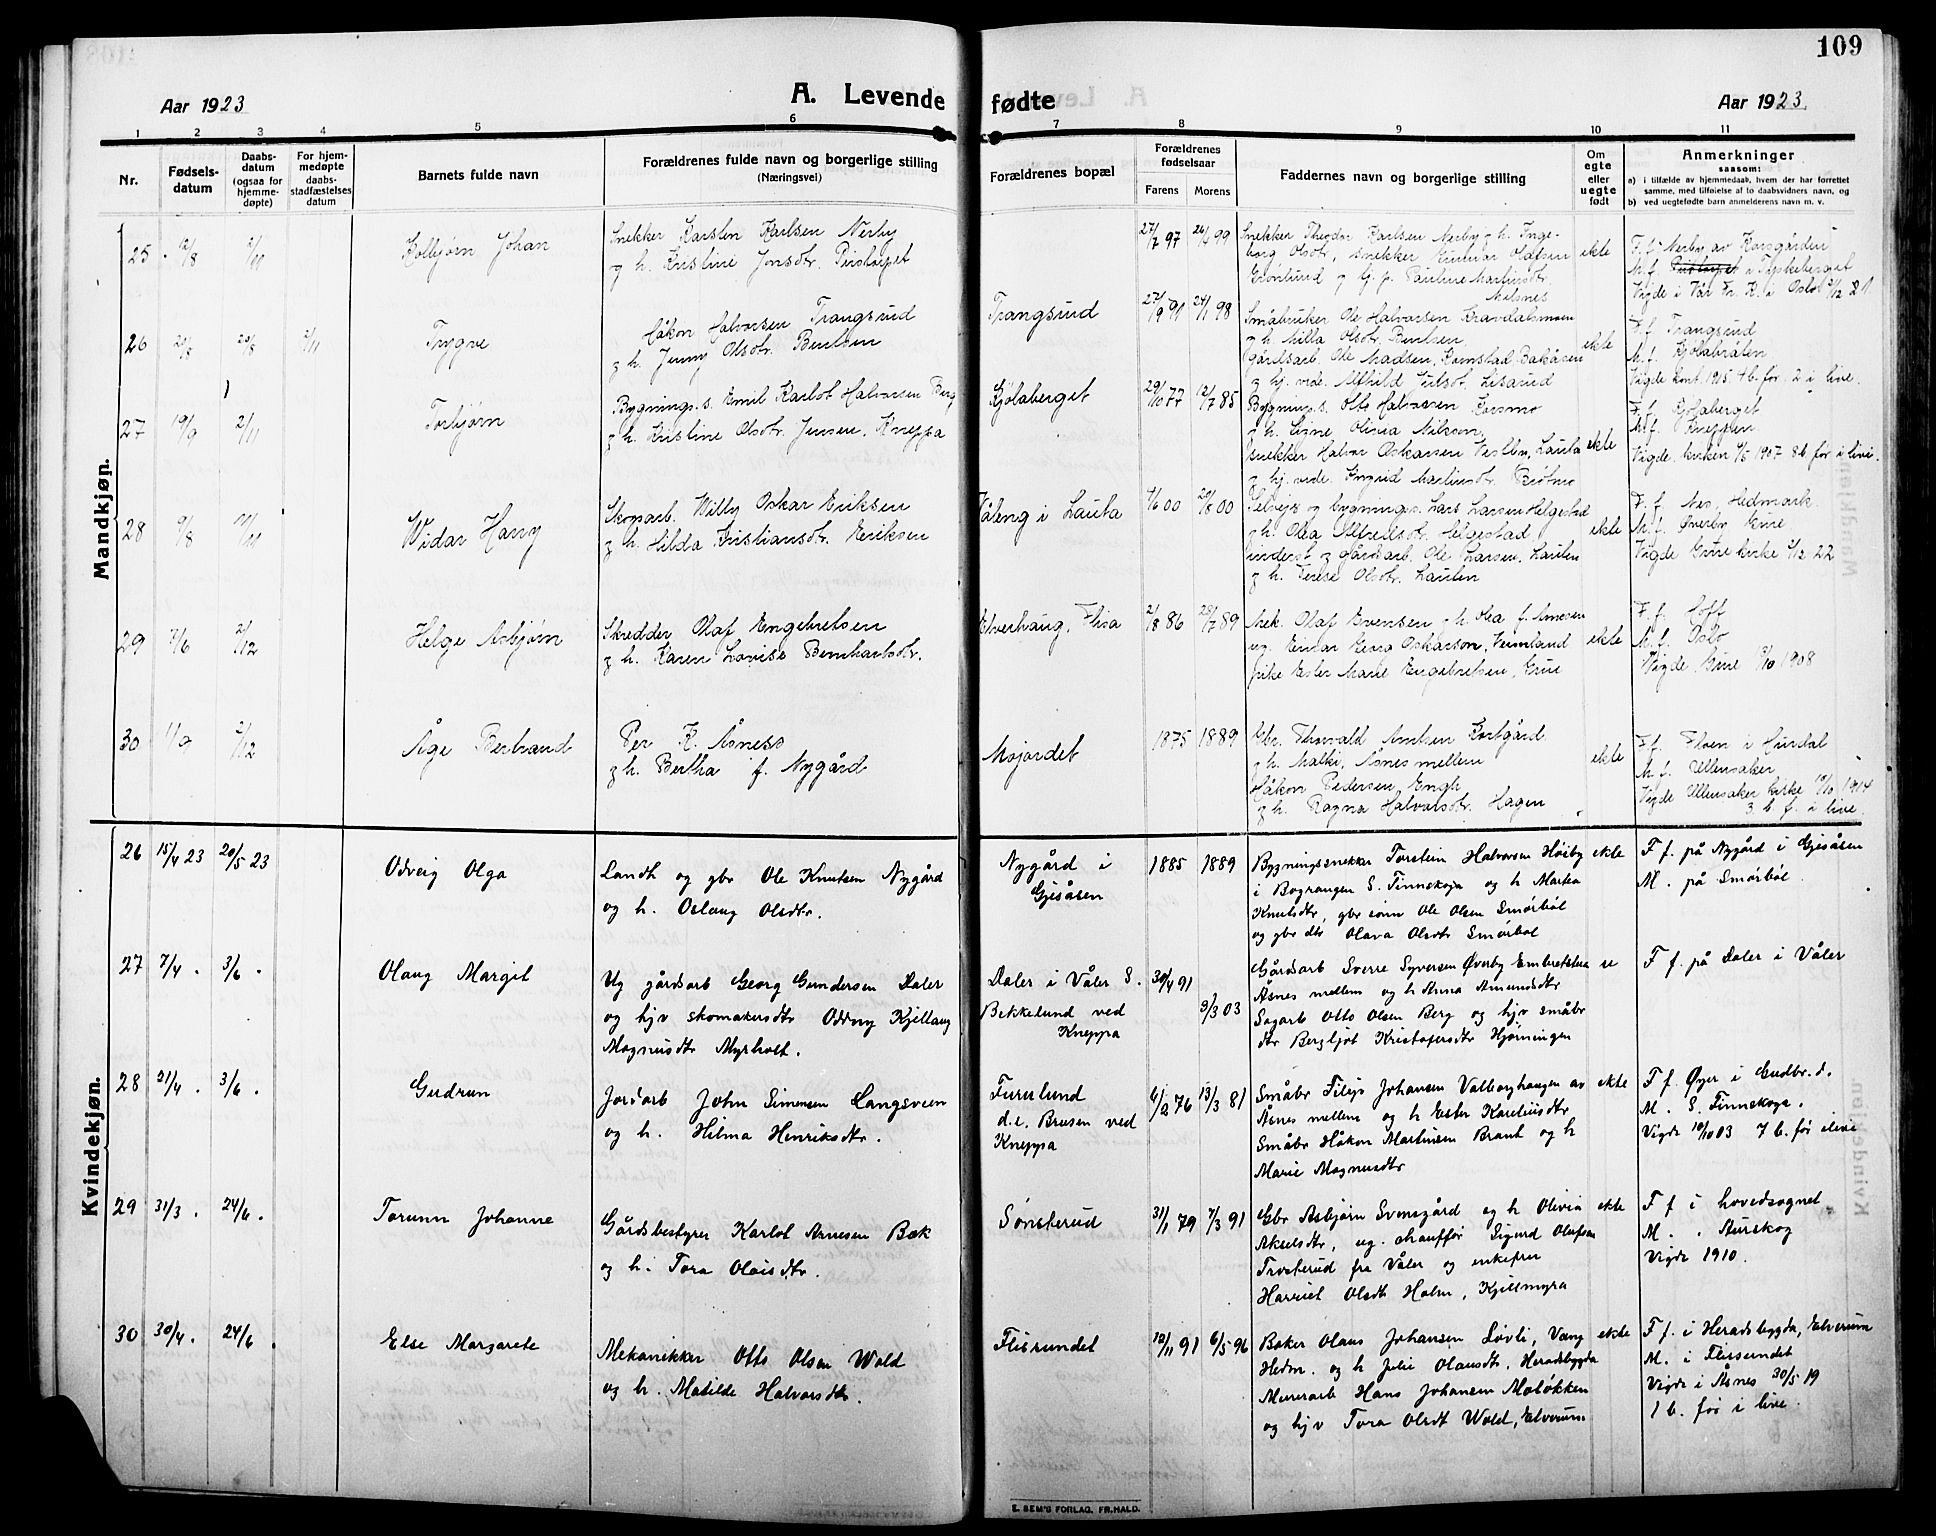 109
Aar 1923
A. Levende
fødte
Aar 1923.
1 2 3 4 5 6 7 8 9 10 11
Nr.
Fødsels-
datum
Daabs-
datum
(ogsaa for
hjemme-
døpte)
For hjem-
medøpte
daabs-
stadfæstelses
datum
Barnets fulde navn
Forældrenes fulde navn og borgerlige stilling
(Næringsvei)
Forældrenes bopæl
Forældrenes
fødselsaar
Farens Morens
Faddernes navn og borgerlige stilling
Om
egte
eller
uegte
født
Anmerkninger
saasom:
a) i tilfælde av hjemmedaab, hvem der har forrettet
samme, med tilføielse af to daabsvidners navn, og
b) ved uegtefødte barn anmelderens navn m. v.
Mandkjøn.
25 12/8 2/11 Kolbjørn Johan
Snekker Karsten Karlsen Nerby
og h. Kristine Jonsdtr.
27/7 97 99
Snekker Theodor Karlsen Nerby og h. Inge-
borg Olsdtr, snekker Gunnar Olafsen
Grønlund og hj. p. Pauline Martinsdtr.
ekte
F. f. Nerby av Korsgården
M. f. i Tyskeberget
Vigde i Vår Fr. K. i Oslo 21
26 20/8 2/11 Trygve
Håkon Halvorsen Trangsund
og h. Jenny Olsdtr. Berntsen
Trangsund
27/9 91 24/1 98
Småbruker Ole Halvorsen Gravdalsmoen
og h. Milla Olsdtr. Berntsen,
Gårdsarb. Ole Madsen, Komstad,
og hj. vær. Alfhild
ekte
F. f. Trangsund
M. f. Kjølabråten
Vigde 1915. 4 b. før. 2 i live.
27 19/9 2/11 Torbjørn
Bygnings.s. Emil Karlot Halvorsen Berg
og h. Kristine Olsdtr. Jensen, Kneppa
Kjølaberget
29/10 77 12/7 85
Bygnings.s. Otto Halvorsen Korsmo
og h. Signe Olivia Nilsen,
snekker Halvor Oskarsen Vestby, Lauta
og hj. vær. Ingrid Martinsdtr. Brøtmo
ekte
F. f. Kjølaberget
M. f. Kneppen
Vigde. kirken 1907 8 b. før i live.
28 9/8 11/11 Widar Harry
Skogsarb. Willy Oskar Eriksen
og h. Hilda Kristiansdtr. Eriksen
Våleng i Lauta
00 20/8 00
Selveier og bygnings.s. Lars Larsen Helgestad
og h. Olea Alfredsdtr. Helgestad,
inderst og gårdsarb. Ole Larsen, Lauten
og h. Terese Olsdtr. Lauten
ekte
F. f. Nes, Hedmark.
M. f. Øverby, Grue
Vigde Grue kirke 22
29 7/6 2/12 Helge Asbjørn
Skredder Olaf Engebretsen
og h. Karen Lovise Bernhartsdtr.
Elverhaug, Flisa
2/8 86 28/7 89
Mek. Olaf Evensen og h. Hea f. Arnesen
ug. Einar Oskarson, Vermland
pike Ester Marie Engebretsen, Grue
ekte
M. f. Oslo
Vigde. Grue 1908
30 11/9 2/12 Åge Bertrand
Per K. Åsness
og h. Bertha f. Nygård
Mojordet
1875 1889
Gbr. Thorvald Arntsen Kortgård
og h. Malki, Åsnes mellem
Håkon Pedersen Engh
og h. Ragna Halvorsdtr. Hagen
ekte
F. f. Floen i Hurdal
M. f. Ullensaker
Vigde Ullensaker kirke 1914
3 b. f. i live.
Kvindekjøn.
26 15/4 23 20/5 23 Odveig Olga
Landh og gbr Ole Knutsen Nygård
og h. Oslaug Olsdtr.
Nygård i
Gjesåsen
1885 1889
Bygningssnekker Torstein Halvorsen Høiby
i Bograngen S. Finnskoga og h Martea
Knutsdtr, gbr sønn Ole Olsen Smørbøl
og gbr dtr Olava Olsdtr Smørbøl
ekte
F f. på Nygård i Gjesåsen
M. på Smørbøl.
27 7/4 . 3/6 . Olaug Margit
Ug gårdsarb Georg Gundersen Daler
og hjv skomakersdtr Oddny Kjellaug
Magnusdtr Myrholt.
Daler i Våler S.
Bekkelund ved
Kneppa
30/4 91
9/3 03
Gårdsarb Sverre Syversen Øverby
Åsnes mellem og h Anna Amundsdtr
Sagarb Otto Olsen Berg og hjv småbr
dtr Bergljot Kristofersdtr Hjørningen
F f. på Daler i Våler
28 21/4 . 3/6 . Gudrun
Jordarb John Simensen Langsveen
og h. Hilma Henriksdtr.
Furulund
d.e. Brusen ved
Kneppa
76 13/3 81
Småbr Filip Johansen Valborghaugen av
Åsnes mellem og h Ester Kareliusdtr
Småbr Håkon Martinsen Braut og h
Marie Magnusdtr
ekte
F f. Øyer i Gudbr.d.
M. S. Finnskoga.
Vigde 10/10 03 7 b. før i live
29 31/3 . 24/6 . Torunn Johanne
Gårdsbestyrer Karlot Arnesen Bæk
og h. Tora Olaisdtr.
Sønsterud
31/1 79 7/3 91
Gbr Asbjørn Svensgård og h Olivia
Akselsdtr, ug. chauffør Sigurd Olufsen
Trosterud fra Våler og enkefru
Harriet Olsdtr Holm, Kjellmyra
ekte
F f i hovedsognet
M. . Aurskog
Vigde 1910.
30 30/4 . 24/6 . Else Margarete
Mekanikker Otto Olsen Wold
og h. Matilde Halvorsdtr.
Flisrundet
10/11 91 6/5 96
Baker Olaus Johansen Løvli, Vang
Hedm. og h Julie Olausdtr, Heradsbygda
Murerarb Hans Johansen Moløkken
og hjv Tora Olsdtr Wold, Elverum
ekte
F f. i Heradsbygda, Elverum
M. i Flisrundet
Vigde i Åsnes 30/5 19
1 b. før i live.
E. SEM'S FORLAG, FR.HALD.